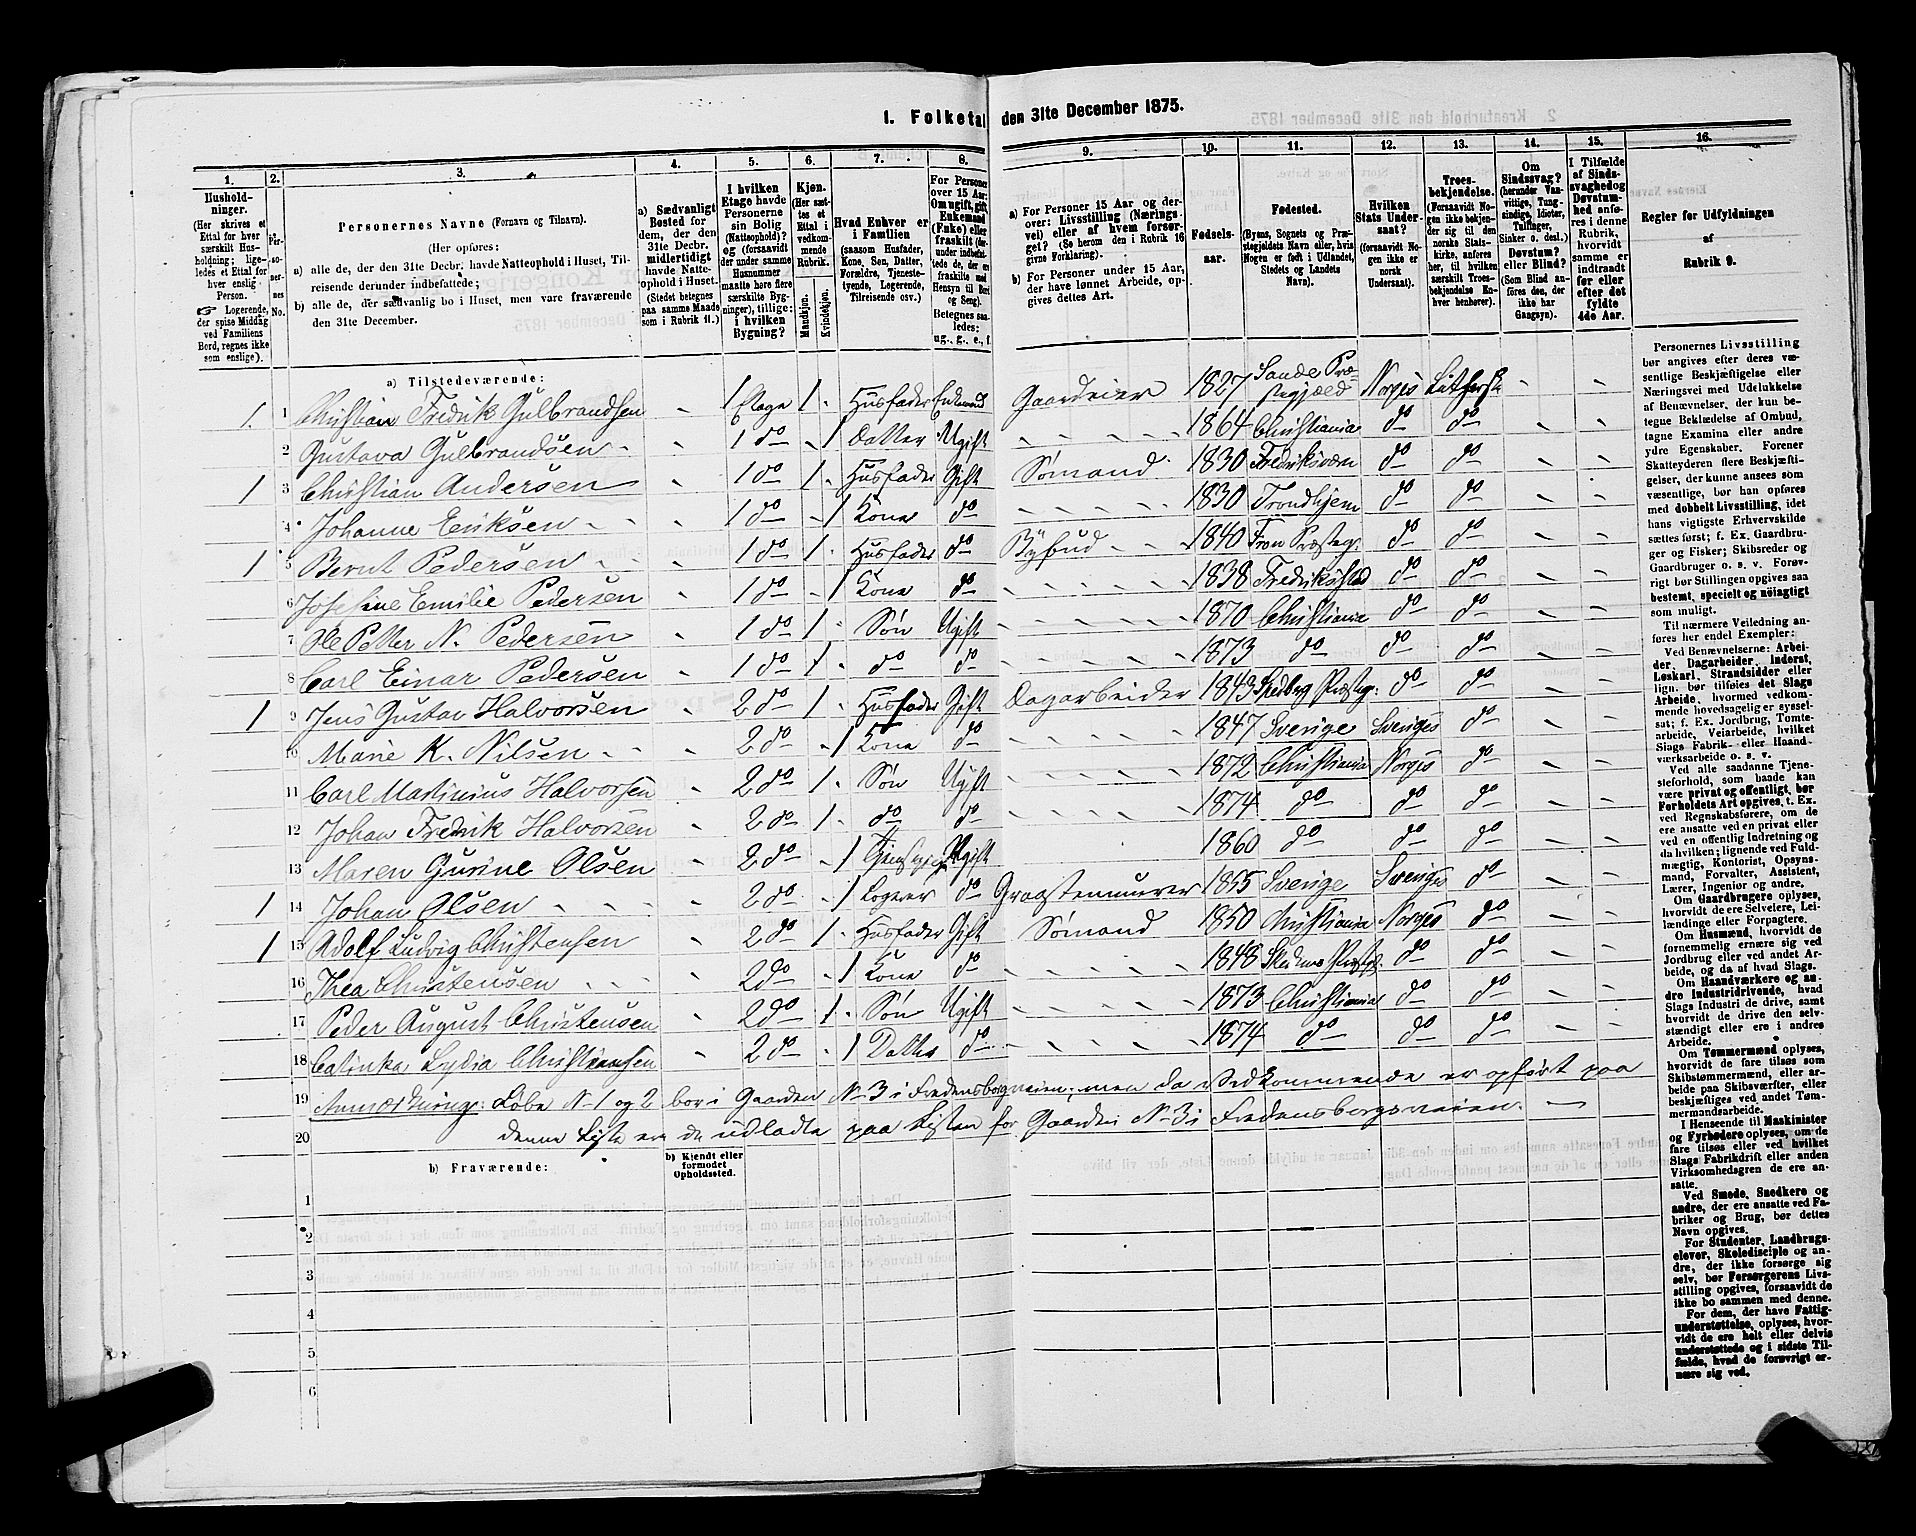 1. Folketal den 31te December 1875.
1. 2. 3. 4. 5. 6. 7. 8. 9. 10. 11. 12. 13. 14. 15. 16.
Husholdninger. (Her skrives et Ettal for hver særskilt Husholdning; ligeledes et Ettal for hver enslig Person. ☞ Logerende, der spise Middag ved Familiens Bord, regnes ikke som enslige).
Personernes No.
Personernes Navne (Fornavn og Tilnavn).
(Her opføres:
a) alle de, der den 31te Decbr. havde Natteophold i Huset, Tilreisende derunder indbefattede;
b) alle de, der sædvanlig bo i Huset, men vare fraværende den 31te December.
a) Sædvanligt Bosted for dem, der den 31te Decbr. midlertidigt havde Natteophold i Huset. (Stedet betegnes paa samme Maade som i Rubrik 11.)
I hvilken Etage havde Personerne sin Bolig (Natteophold)? og (forsaavidt der under samme Husnummer maatte høre flere særskilte Bygninger), tillige: i hvilken Bygning?
Kjøn. (Her sættes et Ettal i vedkommende Rubrik. Mandkjøn. Kvindekjøn.
Hvad Enhver er i Familien (saasom Husfader, Kone, Søn, Datter, Forældre, Tjenestetyende, Logerende, Tilreisende osv.)
For Personer over 15 Aar: Om ugift, gift, Enkemand (Enke) eller fraskilt
Betegnes saaledes: ug., g., e., f.
a) For Personer 15 Aar og derover: Livsstilling (Næringsvei) eller af hvem forsørget? (Se herom den i Rubrik 16 givne Forklaring).
b) For Personer under 15 Aar, der have lønnet Arbeide, opgives dettes Art.
Fødselsaar.
Fødested. (Byens, Sognets og Præstegjeldets Navn eller, hvis Nogen er født i Udlandet, Stedets og Landets Navn).
Hvilken Stats Undersaat? (forsaavidt Nogen ikke er norsk Undersaat).
Troesbekjendelse. (Forsaavidt Nogen ikke bekjender sig til den norske Statskirke, anføres her, til hvilken særskilt Troesbekjendelse Enhver henhører).
Om Sindssvag? (herunder Vanvittige, Tungsindige, Idioter, Tullinger, Sinker o. desl.) Døvstum? eller Blind? (Som Blind anføres den, der ikke har Gangsyn).
I Tilfælde af Sindssvaghed og Døvstumhed anføres i denne Rubrik, hvorvidt samme er indtraadt før eller efter det fyldte 4de Aar.
Regler for Udfyldningen af Rubrik 9.
a) Tilstedeværende:
1. 1 Christian Fredrik Gulbrandsen - 1 Etage 1 - Husfader Enkemand Gaardeier 1827 Sande Præstegjæld Norges Lutherske
2 Gustava Gulbrandsen - 1 do - 1 Datter Ugift 1864 Christiania do do
1 3 Christian Andersen - 1 do 1 - Husfader Gift Sømand 1830 Fredriksværn do do
4 Johanne Eriksen - 1 do - 1 Kone do 1830 Trondhjem do do
1 5 Bernt Pedersen - 1 do 1 - Husfader do Bybud 1840 Fron Præsteg. do do
6 Josefine Emilie Pedersen - 1 do - 1 Kone do 1838 Fredrikstad do do
7 Ole Petter N. Pedersen - 1 do 1 - Søn Ugift 1870 Christiania do do
8 Carl Einar Pedersen - 1 do 1 - do do 1873 do do do
1 9 Jens Gustav Halvorsen - 2 do 1 - Husfader Gift Dagarbeider 1843 Præsteg: do do
10 Marie K. Nilsen - 2 do - 1 Kone do 1847 Sverige Sveriges do
11 Carl Martinius Halvorsen - 2 do 1 - Søn Ugift 1872 Christiania Norges do
12 Johan Fredrik Halvorsen - 2 do 1 - do do 1874 do do do
13 Maren Gurine Olsen - 2 do - 1 Ugift 1860 do do do
1 14 Johan Olsen - 2 do - 1 Logerer do Graastensmurer 1855 Sverige Sveriges do
1 15 Adolf Ludvig Christensen - 2 do 1 - Husfader Gift Sømand 1850 Christiania Norges do
16 Thea Christensen - 2 do - 1 Kone do 1848 do do
17 Peder August Christensen - 2 do 1 - Søn Ugift 1873 Christiania do do
18 Catinka Lydia Christiansen - 2 do - 1 Datter do 1874 do do do
19 Anmærkning: Løbe N- 1 og 2 bor i Gaarden N- 3 i Fredensborgveien; men da Vedkommende er opført paa
20 denne Liste ere de udladte paa Listen for Gaarden N- 3 i Fredensborgsveien.
b) Fraværende:
b) Kjendt eller formodet Opholdssted.
1
2
3
4
5
6
Personernes Livsstilling bør angives efter deres væsentlige Beskjæftigelse eller Næringsvei med Udelukkelse af Benævnelser, der kun betegne Beklædelse af Ombud, tagne Examina eller andre ydre Egenskaber. Forener Skatteyderen flere Beskjæftigelser, der kunne ansees som væsentlige, bør han opføres med dobbelt Livsstilling, idet hans vigtigste Erhvervskilde sættes først; f. Ex. Gaardbruger og Fisker; Skibsreder og Gaardbruger o. s. v. Forøvrigt bør Stillingen opgives saa bestemt, specielt og nøiagtigt som muligt.
Til nærmere Veiledning anføres her endel Exempler:
Ved Benævnelserne: Arbeider, Dagarbeider, Inderst, Løskarl, Strandsidder eller lign. bør tilføies det Slags Arbeide, hvormed vedkommende hovedsagelig er sysselsat; f. Ex. Jordbrug, Tomtearbeide, Veiarbeide, hvilket Slags Fabrik- eller Haandværksarbeide o. s. v.
Ved alle saadanne Tjenesteforhold, som baade kan være privat og offentligt, bør Forholdets Art opgives, t. Ex. ved Regnskabsførere, om de ere ansatte ved en privat eller en offentlig Indretning og da hvilken; lignende ved Fuldmægtig, Kontorist, Opsynsmand, Forvalter, Assistent, Lærer, Ingeniør og andre.
Om Gaardbrugere oplyses, hvorvidt de ere Selveiere, Leilændinge eller Forpagtere.
Om Husmænd, hvorvidt de fornemmelig ernære sig ved Jordbrug eller ved andet Arbeide, og da af hvad Slags.
Om Haandværkere og andre Industridrivende, hvad Slags Industri de drive, samt hvorvidt de drive den selvstændigt eller ere i andres Arbeide.
Om Tømmermænd oplyses, hvorvidt de fare tilsøs som Skibstømmermænd, eller arbeide paa Skibsværfter, eller beskjæftiges ved andet Tømmermandsarbeide.
I Henseende til Maskinister og Fyrbødere oplyses, om de fare tilsøs eller ved hvilket Slags Fabrikdrift eller anden Virksomhedsgren de ere ansatte.
Ved Smede, Snedkere og andre, der ere ansatte ved Fabriker og Brug, bør dettes Navn opgives.
For Studenter, Landbrugselever, Skoledisciple og andre, der ikke forsørge sig selv, bør Forsørgerens Livsstilling opgives, forsaavidt de ikke bo sammen med denne.
For dem, der have Fattigunderstøttelse, oplyses, hvorvidt de ere helt eller delvis understøttede og i sidste Tilfælde, hvad de forøvrigt ernære sig ved.